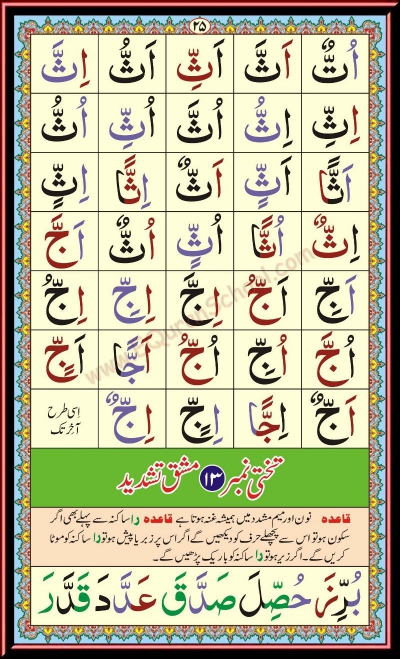 ۲۵
اُتٌّ اَثَّ اَثِّ اَثُّ اِثَّ
اِثِّ اِثُّ اُثَّ اُثِّ اُثُّ
اَثًّا اَثٍّ اَثٌّ اِثًّا اِثٍّ
اِثٌّ اُثًّا اُثٍّ اُثٌّ اَجَّ
اَجِّ اَجُّ اِجَّ اِجِّ اِجُّ
اُجَّ اُجِّ اُجُّ اَجًّا اَجٍّ
اَجٌّ اِجًّا اِجٍّ اِجٌّ اِسی طرح
آخر تک
تختی نمبر ۱۳ مشق تشدید
قاعدہ نون اور میم مشدد میں ہمیشہ غنہ ہوتا ہے قاعدہ را ساکنہ سے پہلے بھی اگر
سکون ہو تو اس سے پچھلے حرف کو دیکھیں گے اگر اس پر زبر یا پیش ہو تو را ساکنہ کو موٹا
کریں گے۔ اگر زیر ہو تو را ساکنہ کو باریک پڑھیں گے۔
بُرِّزَ حُصِّلَ صَدَّقَ عَدَّدَ قَدَّرَ